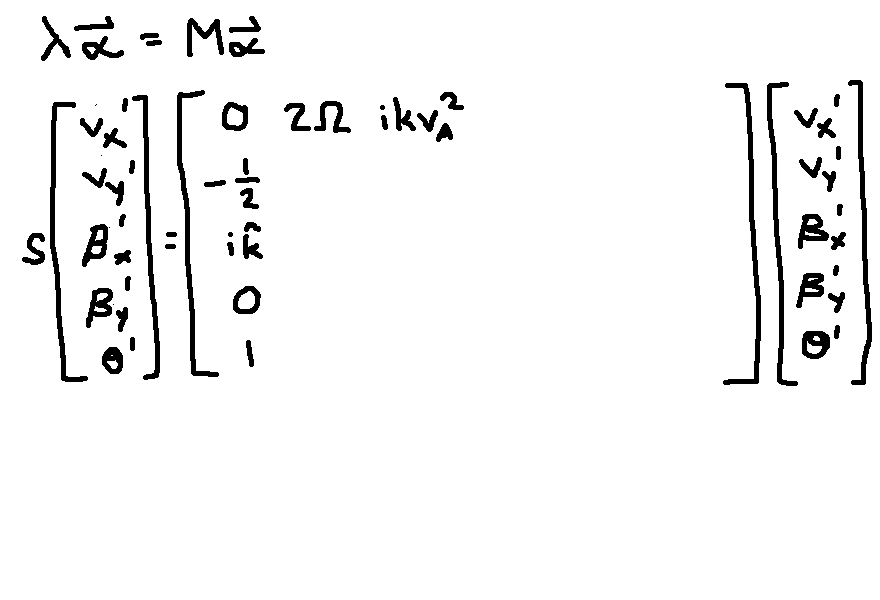 λα⃗ = Mα⃗
s [v_x' v_y' β_x' β_y' θ'] = [0 2Ω ikv_A² -1/2 ik̃ 0 1] [v_x' v_y' β_x' β_y' θ']